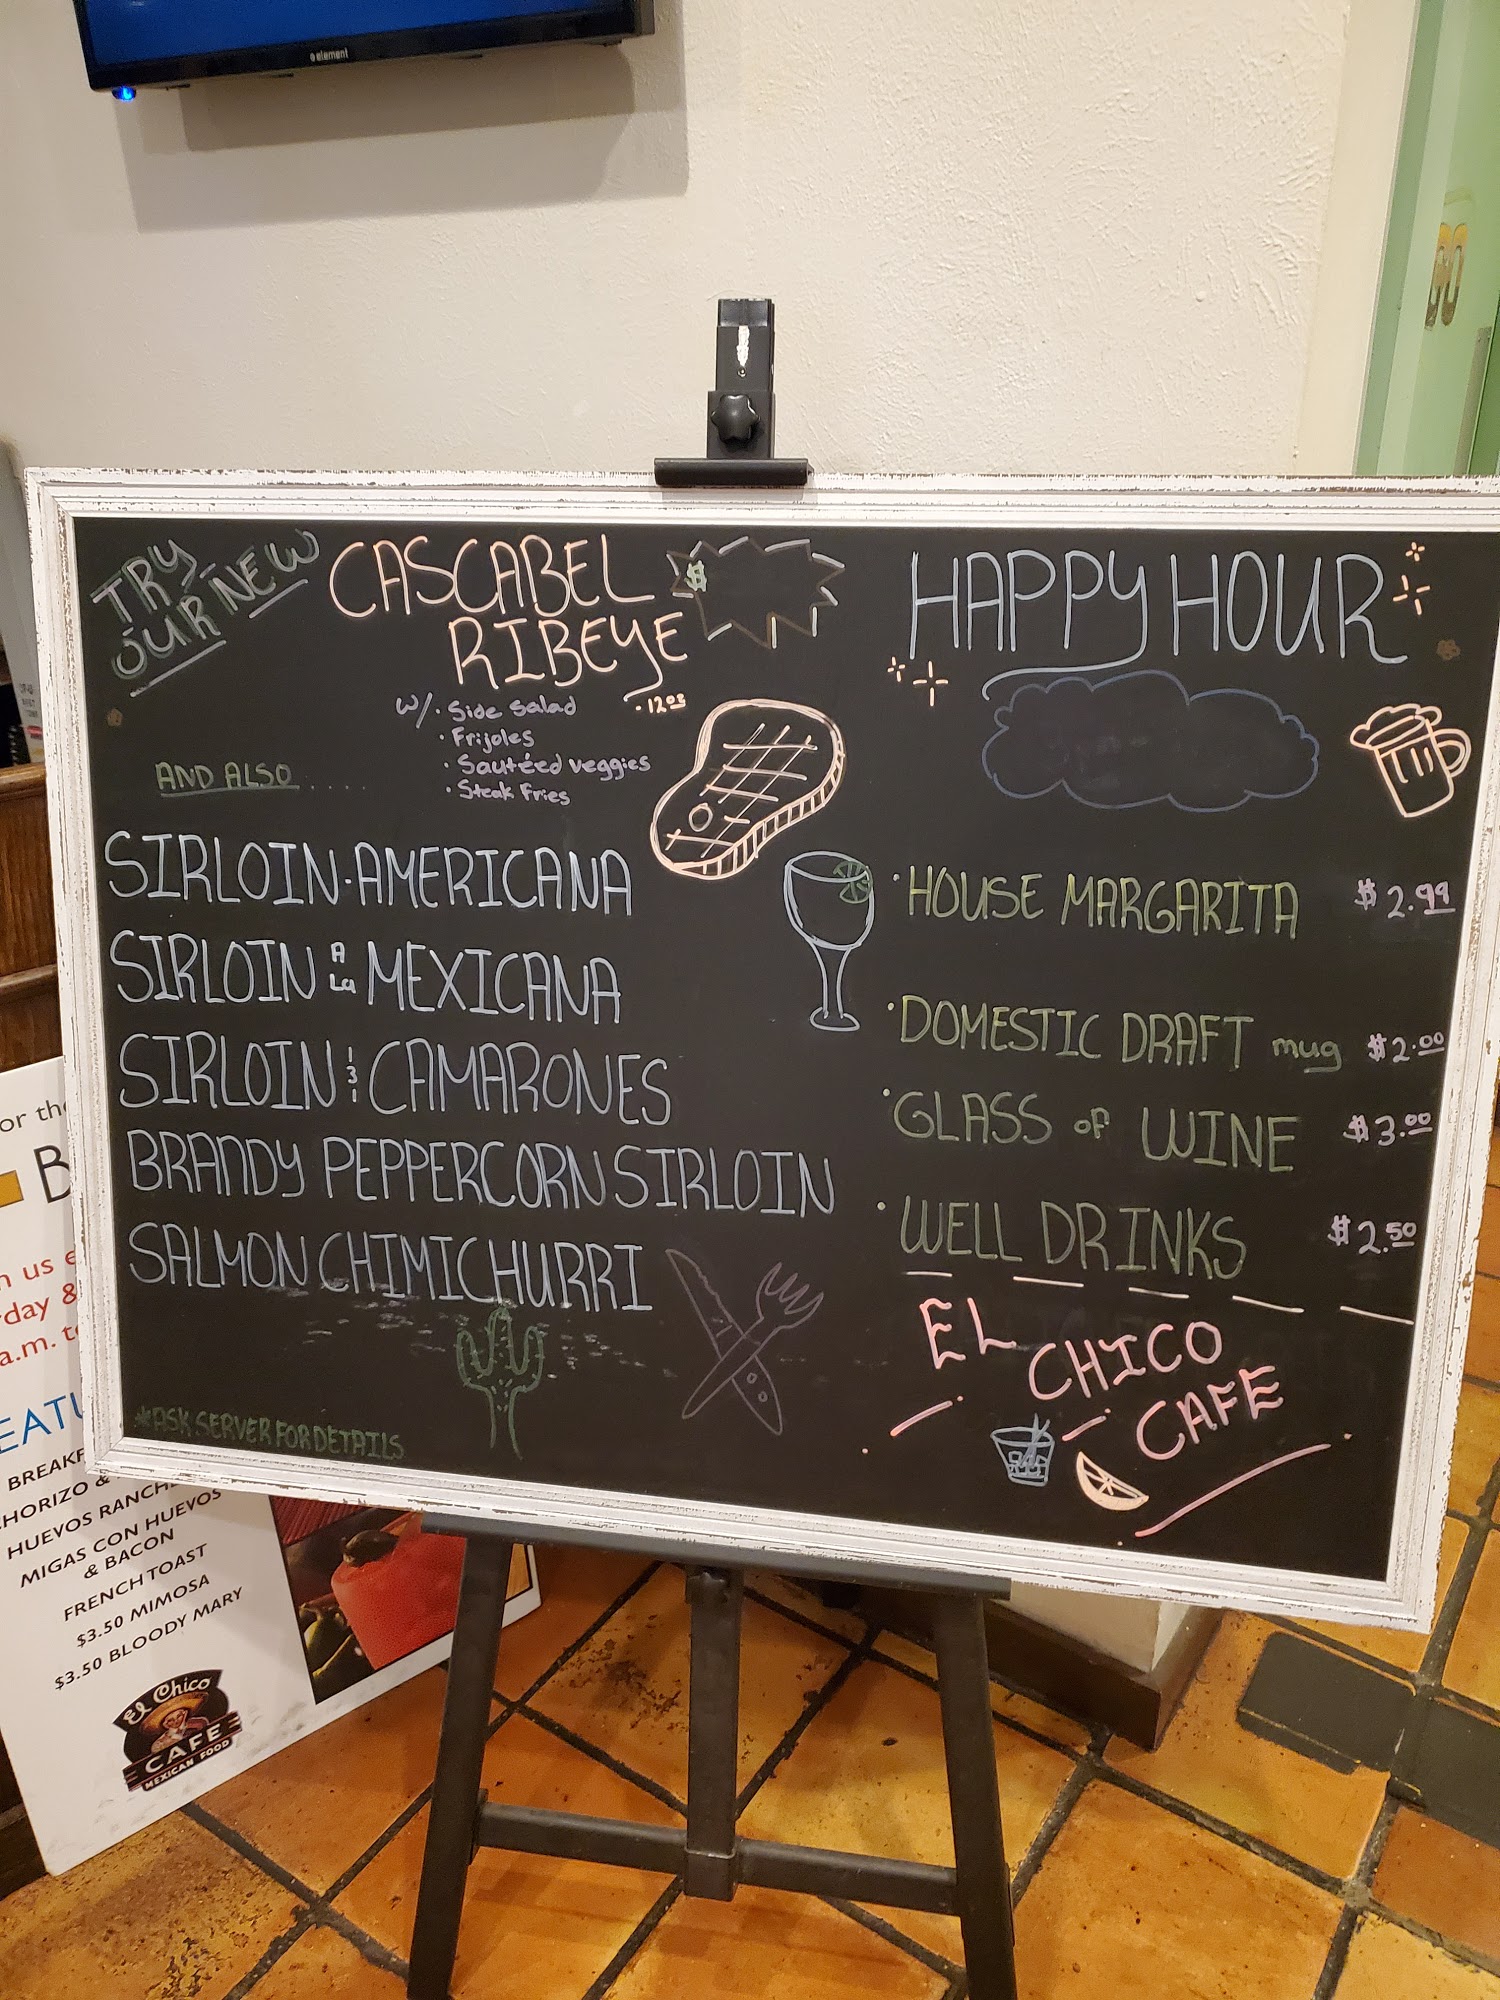 element
TRY
OUR NEW
CASCABEL
RIBEYE
$
W/ · Side Salad
· 12oz
· Frijoles
· Sautéed veggies
· Steak Fries
AND ALSO.....
SIRLOIN·AMERICANA
SIRLOIN A La MEXICANA
SIRLOIN & CAMARONES
BRANDY PEPPERCORN SIRLOIN
SALMON CHIMICHURRI
*ASK SERVER FOR DETAILS
HAPPY HOUR
· HOUSE MARGARITA $2.99
· DOMESTIC DRAFT mug $2.00
· GLASS of WINE $3.00
· WELL DRINKS $2.50
EL
CHICO
CAFE
or the
B
n us e
rday &
a.m. to
EATU
BREAKF
HORIZO &
HUEVOS RANCH
MIGAS CON HUEVOS
& BACON
FRENCH TOAST
$3.50 MIMOSA
$3.50 BLOODY MARY
El Chico
CAFE
MEXICAN FOOD